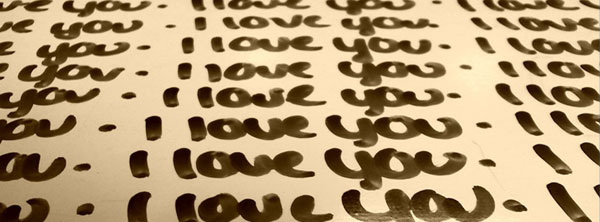 you. I love you. I love
you. I love you. I love
you. I love you. I love
you. I love you. I lov
you. I love you. I lo
you. I love you. I lo
you. I love you. I l
you. I love you. I l